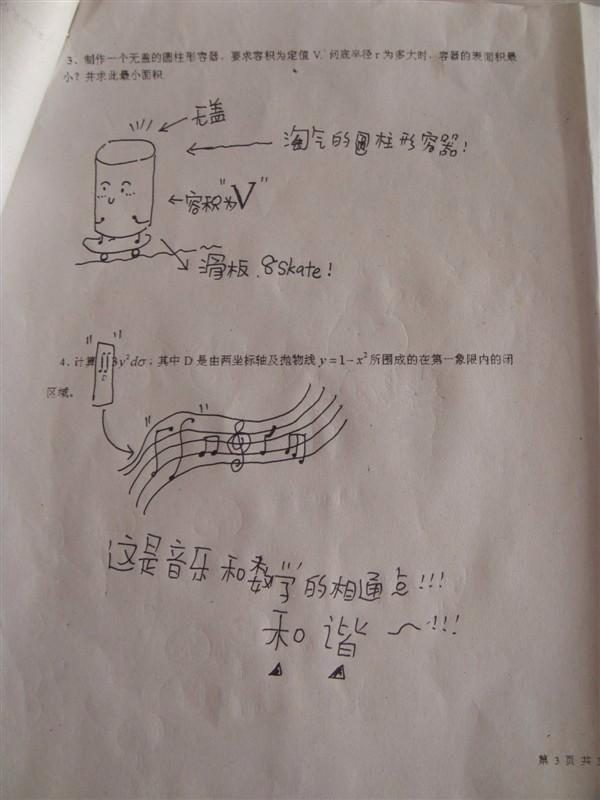 3、制作一个无盖的圆柱形容器，要求容积为定值 V，问底半径 r 为多大时，容器的表面积最
小？并求此最小面积.
无盖
淘气的圆柱形容器！
容积为"V"
滑板. Skate！
4、计算∬3y²dσ；其中 D 是由两坐标轴及抛物线 y=1-x² 所围成的在第一象限内的闭
D
区域。
这是音乐和数学的相通点!!!
和谐～!!!
第 3 页 共